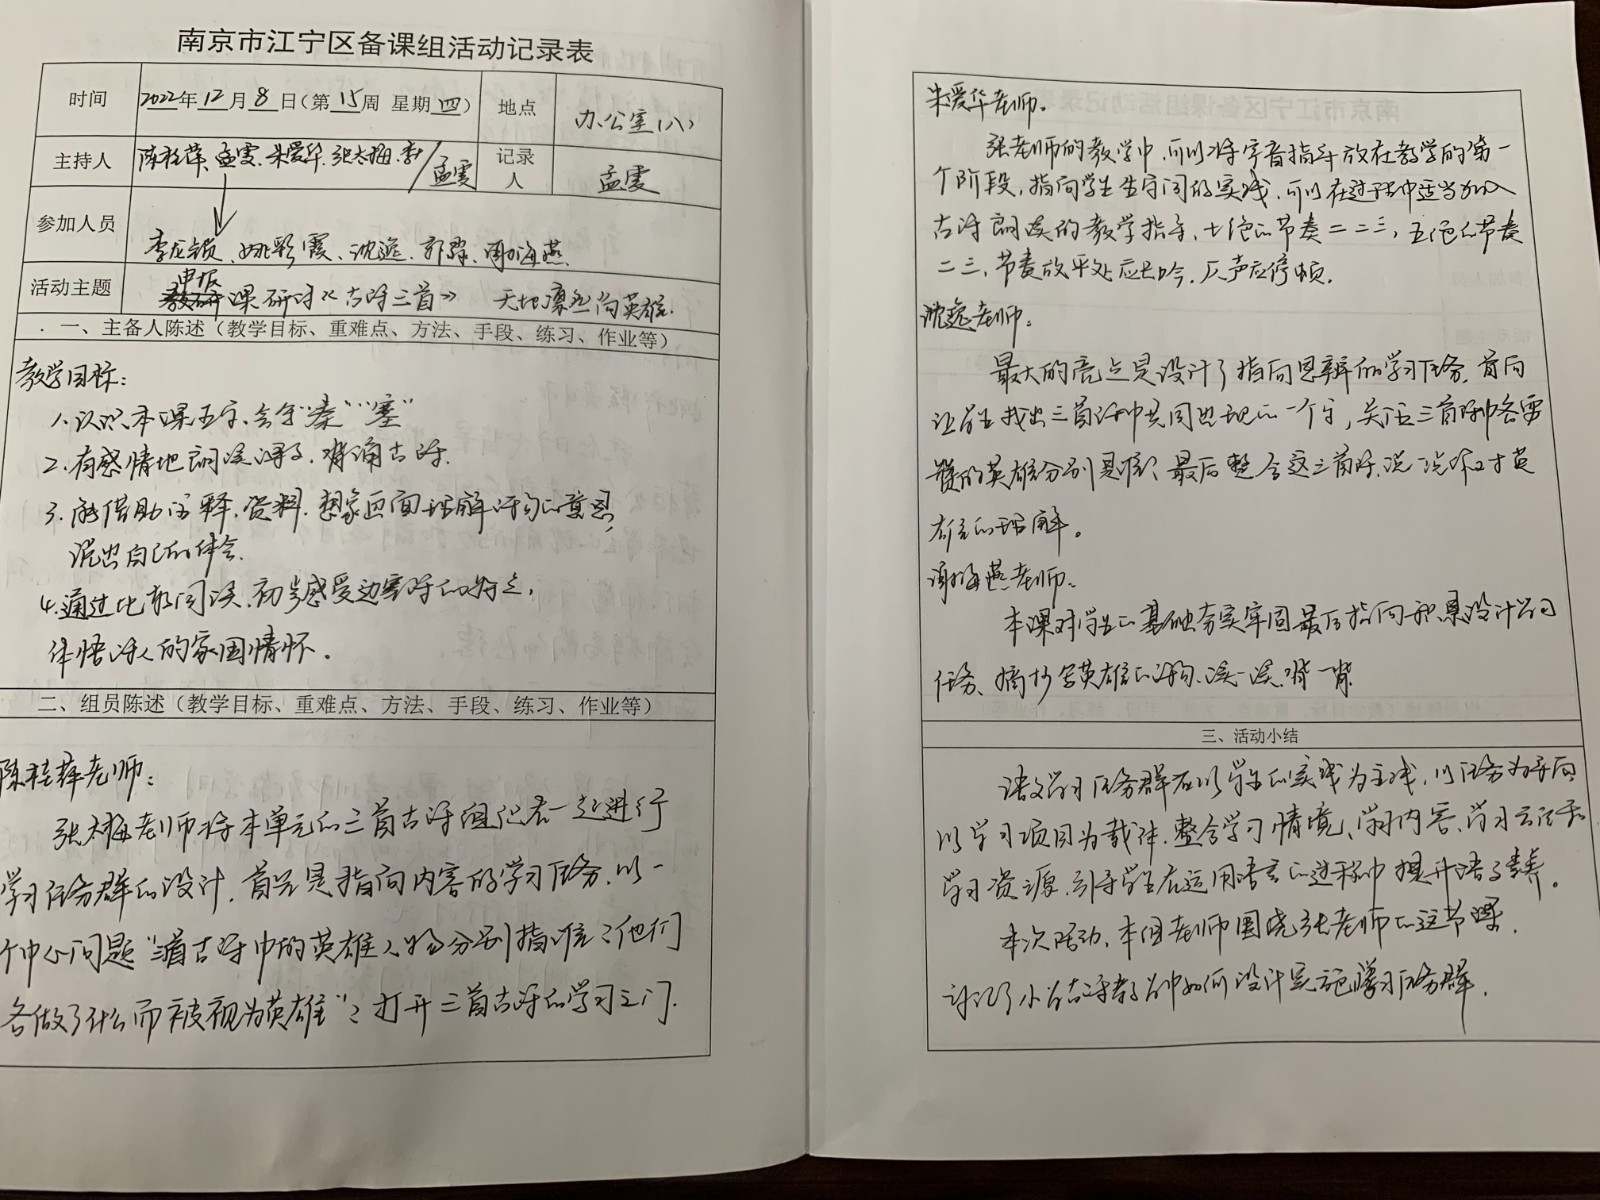 南京市江宁区备课组活动记录表
时间 2022年12月8日(第15周 星期四) 地点 办公室(八)
主持人 陈桂萍、孟雯、朱爱华、张太梅、李/孟雯 记录人 孟雯
参加人员
李龙锁、姚彩霞、沈逸、郭、谢海燕
申报
活动主题 课研讨《古诗三首》 天地 尚英雄
一、主备人陈述（教学目标、重难点、方法、手段、练习、作业等）
教学目标：
1、认识本课生字、会写“秦”“塞”
2、有感情地朗读课文、背诵古诗.
3、能借助注释、资料、想象画面理解诗句的意思,
说出自己的体会.
4、通过比较阅读、初步感受边塞诗的特点,
体悟诗人的家国情怀.
二、组员陈述（教学目标、重难点、方法、手段、练习、作业等）
陈桂萍老师：
张太梅老师将本单元的三首古诗组织在一起进行
学习任务群的设计，首先是指向内容的学习任务，以一
个中心问题“三首古诗中的英雄人物分别指谁？他们
各做了什么而被视为英雄”？打开三首古诗的学习之门.
朱爱华老师：
张老师的教学中，可以将字音指导放在教学的第一
个阶段，指向学生生字词的实践，可以在过程中适当加入
古诗朗读的教学指导，七绝的节奏二二三，五绝的节奏
二三，节奏放平处应吟，仄声应停顿.
沈逸老师：
最大的亮点是设计了指向思辨的学习任务，首向
让学生找出三首诗中共同出现的一个字，关注三首诗中各需
赞的英雄分别是谁、最后整合这三首诗，说说你对英
雄的理解。
谢海燕老师：
本课对学生的基础夯实牢固最后指向积累设计学习
任务、摘抄写英雄的诗句，读一读，背一背.
三、活动小结
语文学习任务群应以学生的实践为主线，以任务为导向
以学习项目为载体，整合学习情境、学习内容、学习方法和
学习资源，引导学生在运用语言的过程中提升语文素养。
本次活动，本组老师围绕张老师的这节课，
讨论了小学古诗教学中如何设计实施学习任务群.